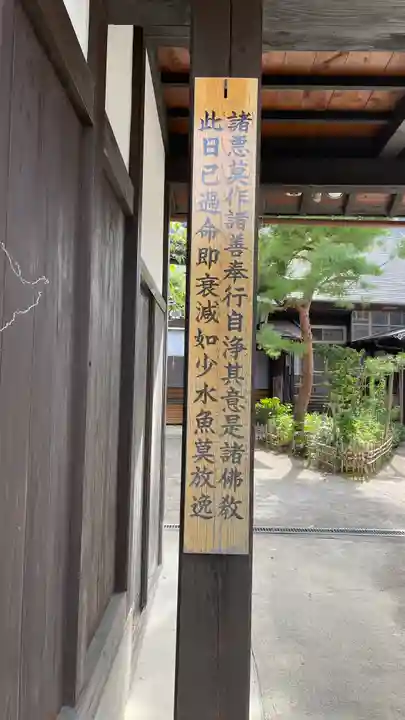 諸悪莫作諸善奉行自浄其意是諸佛教
此日已過命即衰減如少水魚莫放逸